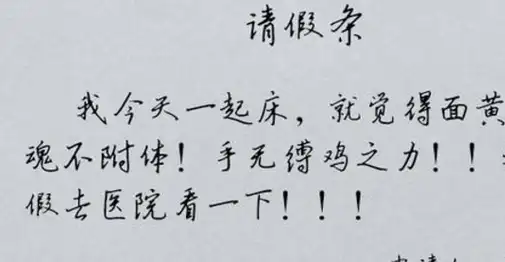 请假条
我今天一起床，就觉得面黄
魂不附体！手无缚鸡之力！！
假去医院看一下！！！